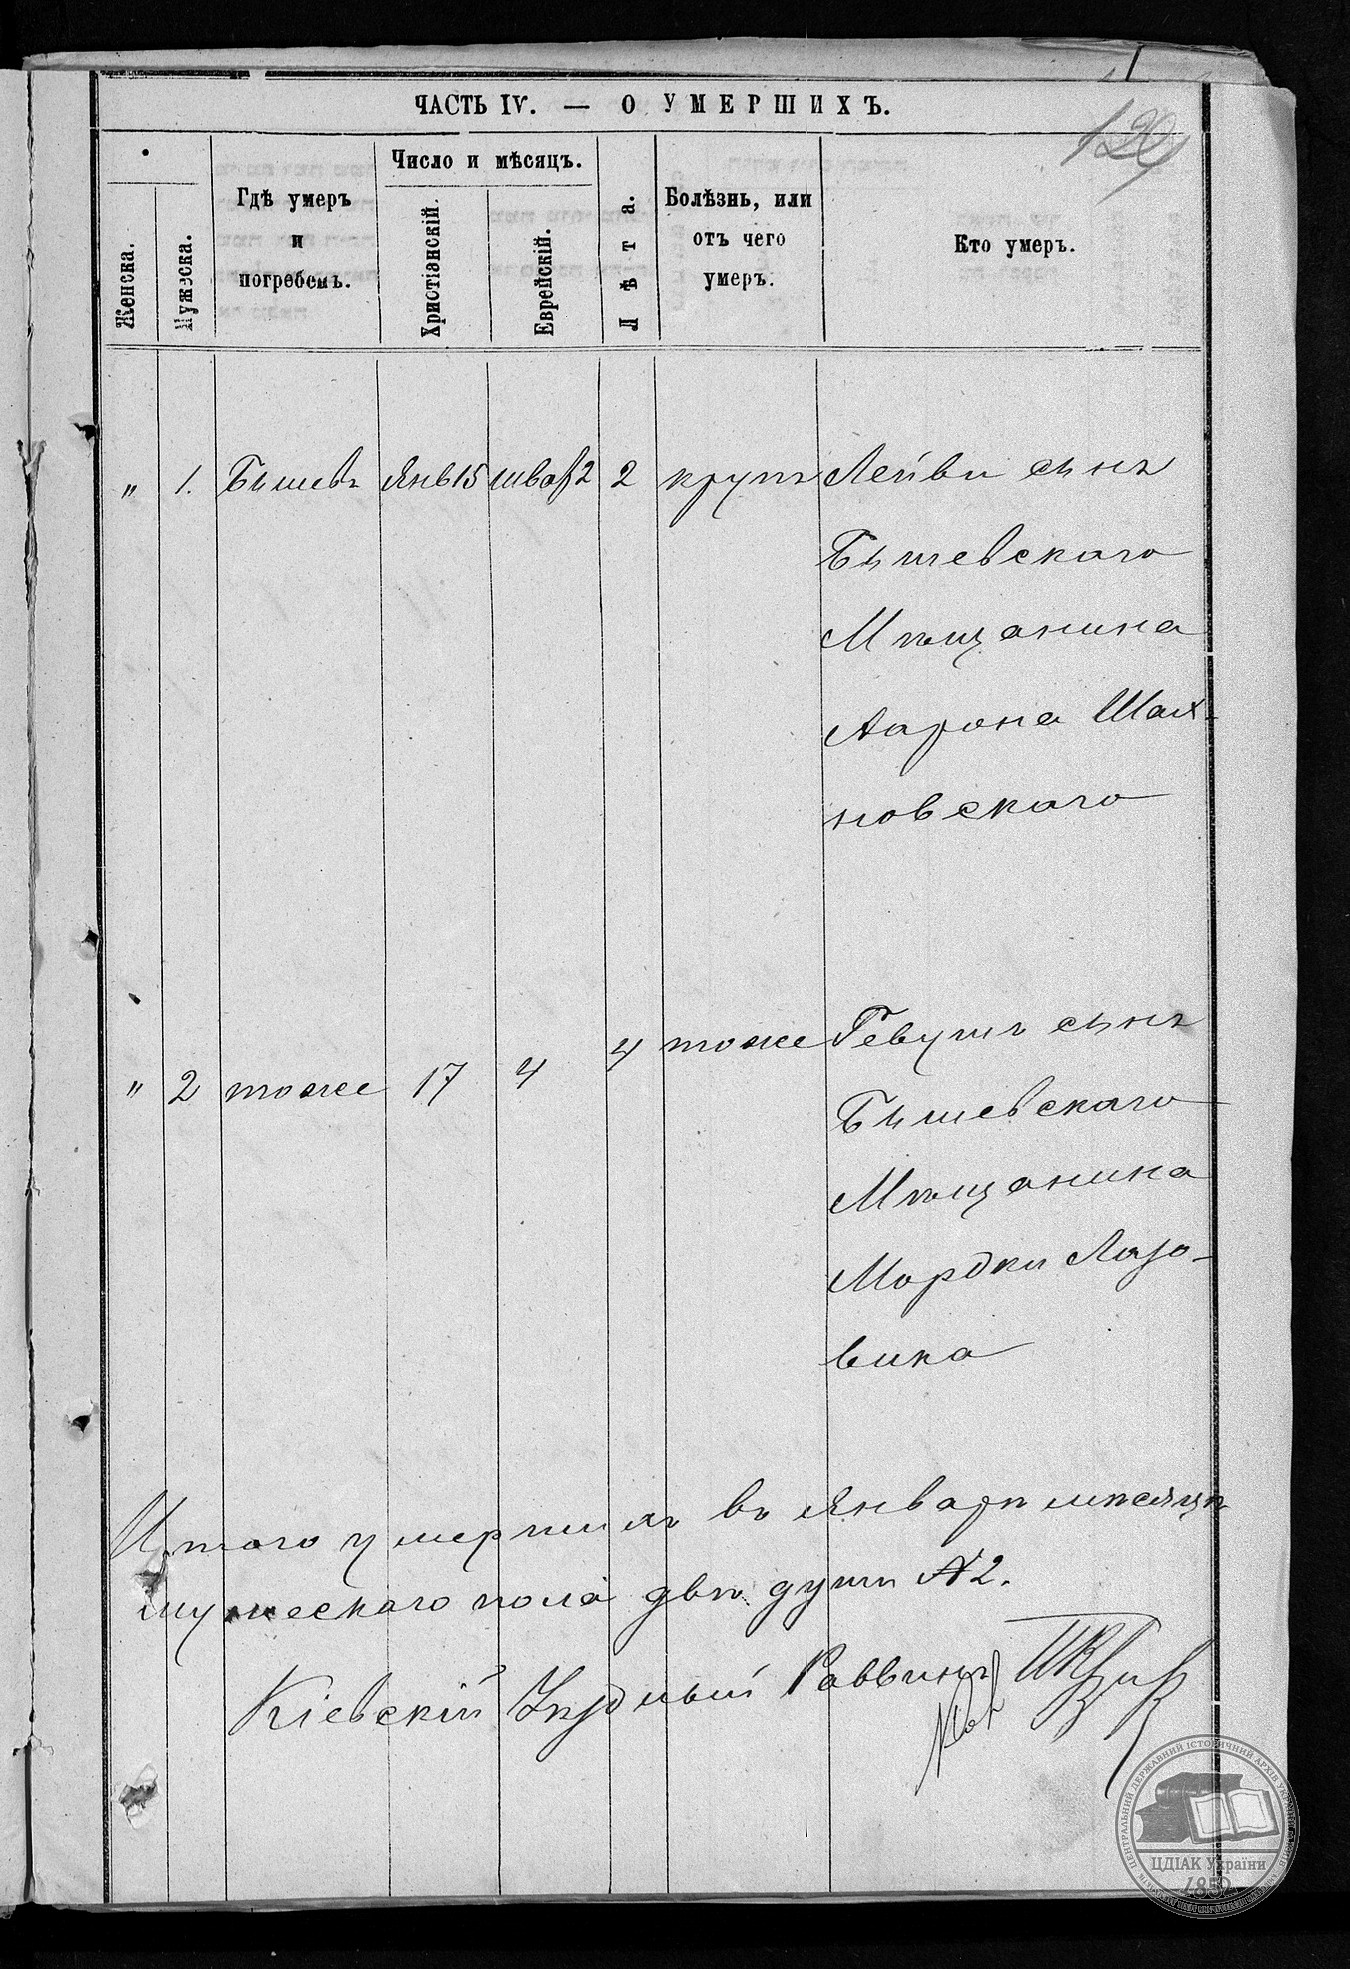 129
ЧАСТЬ IV. — О УМЕРШИХЪ.
Женска.
Мужеска.
Гдѣ умеръ
и
погребенъ.
Число и мѣсяцъ.
Христіанскій.
Еврейскій.
Лѣта.
Болѣзнь, или
отъ чего
умеръ.
Кто умеръ.
" 1. Бышевъ Янв 15 шват 2 2 крупъ Лейви сынъ
Бышевскаго
Мѣщанина
Аарона Шах-
новскаго
" 2 тоже 17 4 4 тоже Гевушъ сынъ
Бышевскаго
Мѣщанина
Мордки Лазо-
вика
Итого умершихъ въ Январѣ месяцѣ
мужескаго пола двѣ души № 2.
Кіевскій Уѣздный Раввинъ
ЦЕНТРАЛЬНИЙ ДЕРЖАВНИЙ ІСТОРИЧНИЙ АРХІВ УКРАЇНИ
ЦДІАК України
1852